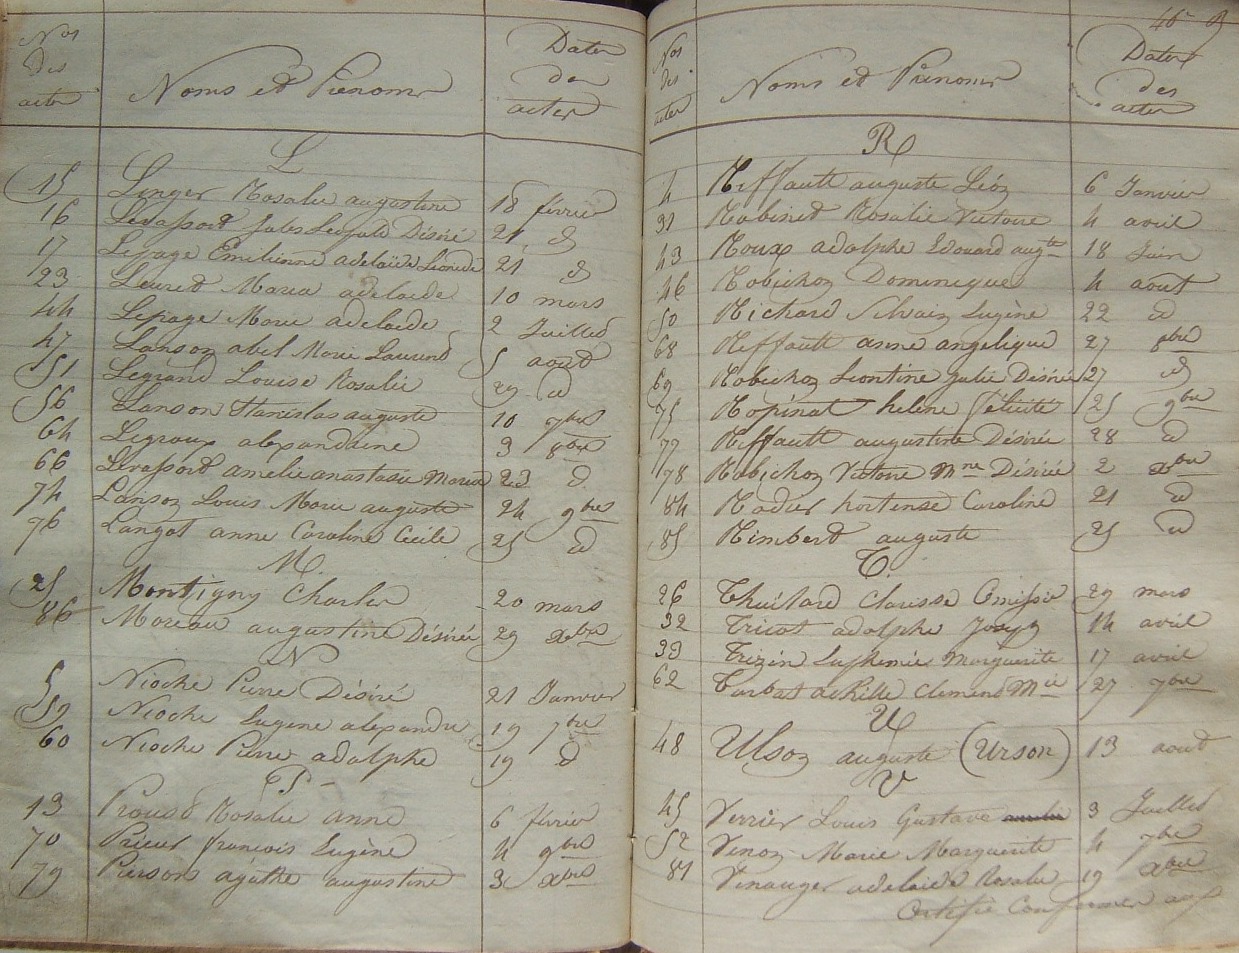 Nos des actes Noms et Prénoms Dates des actes
L
15 Linger Rosalie augustine 18 février
16 Levassort Jules Léopold Désiré 21 d
17 Lepage Emilienne adelaïde Léonide 21 d
23 Leuret Maria adelaide 10 mars
44 Lepage Marie adelaide 2 Juillet
47 Lanson abel Marie Laurent 5 août
51 Legrand Louise Rosalie 29 d
56 Lanson Stanislas auguste 10 7bre
64 Legroux alexandrine 3 8bre
66 Levassort amelie anastasie Maria 23 d
74 Lanson Louis Marie auguste 24 9bre
76 Langot anne Caroline Cécile 25 d
M.
25 Montigny Charles 20 mars
86 Moreau augustine Désirée 29 Xbre
N
5 Nioche Pierre Désiré 21 Janvier
59 Nioche Eugene alexandre 19 7bre
60 Nioche Pierre adolphe 19 d
P
13 Proust Rosalie anne 6 février
70 Prieur françois Eugène 4 9bre
79 Pierson agathe augustine 3 Xbre
46
Nos des actes Noms et Prénoms Dates des actes
R
4 Riffault auguste Léon 6 Janvier
31 Robinet Rosalie Victoire 4 avril
43 Roux adolphe Edouard augte 18 Juin
46 Robichon Dominique 4 août
50 Richard Silvain Eugène 22 d
68 Riffault anne angelique 27 8bre
69 Robichon Leontine Julie Désirée 27 d
75 Ropinat helene Félicité 25 9bre
77 Riffault augustine Désirée 28 d
78 Robichon Victoire Mne Désirée 2 Xbre
84 Radier hortense Caroline 21 d
85 Rimbert auguste 25 d
T.
26 Thuilard Clarisse 29 mars
32 Tricot adolphe Joseph 14 avril
33 Trizin Euphemie Marguerite 17 avril
62 Turbat achille Clement Mie 27 7bre
U
48 Ulson auguste (Urson) 13 aout
V
45 Verrier Louis Gustave 3 Juillet
52 Venon Marie Marguerite 4 7bre
81 Venauger adelaide Rosalie 19 Xbre
Certifié Conforme